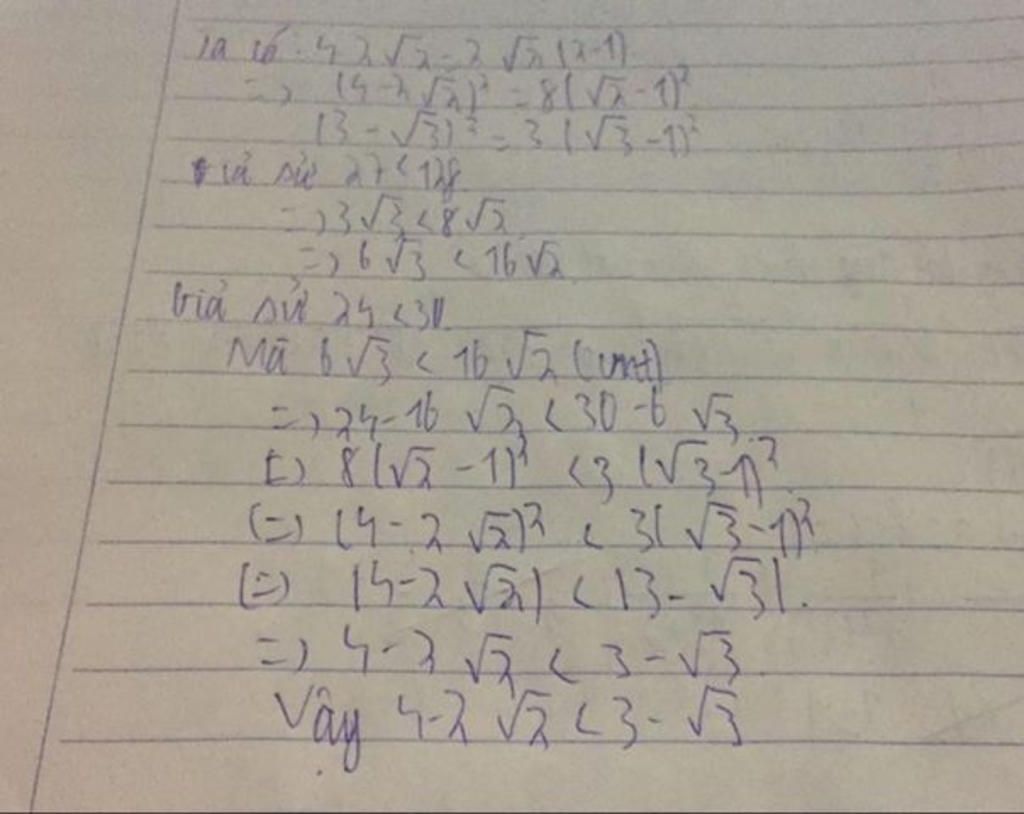 Ta có: 4-2√2=2√2(√2-1)
=> (4-2√2)² = 8(√2-1)²
(3-√3)² = 3(√3-1)²
Giả sử 27<128
=> 3√3<8√2
=> 6√3 < 16√2
Giả sử 24<30
Mà 6√3 < 16√2 (cmt)
=> 24-16√2 < 30-6√3
(=) 8(√2-1)² < 3(√3-1)²
(=) (4-2√2)² < 3(√3-1)²
(=) |4-2√2| < |3-√3|.
=> 4-2√2 < 3-√3
Vậy 4-2√2 < 3-√3